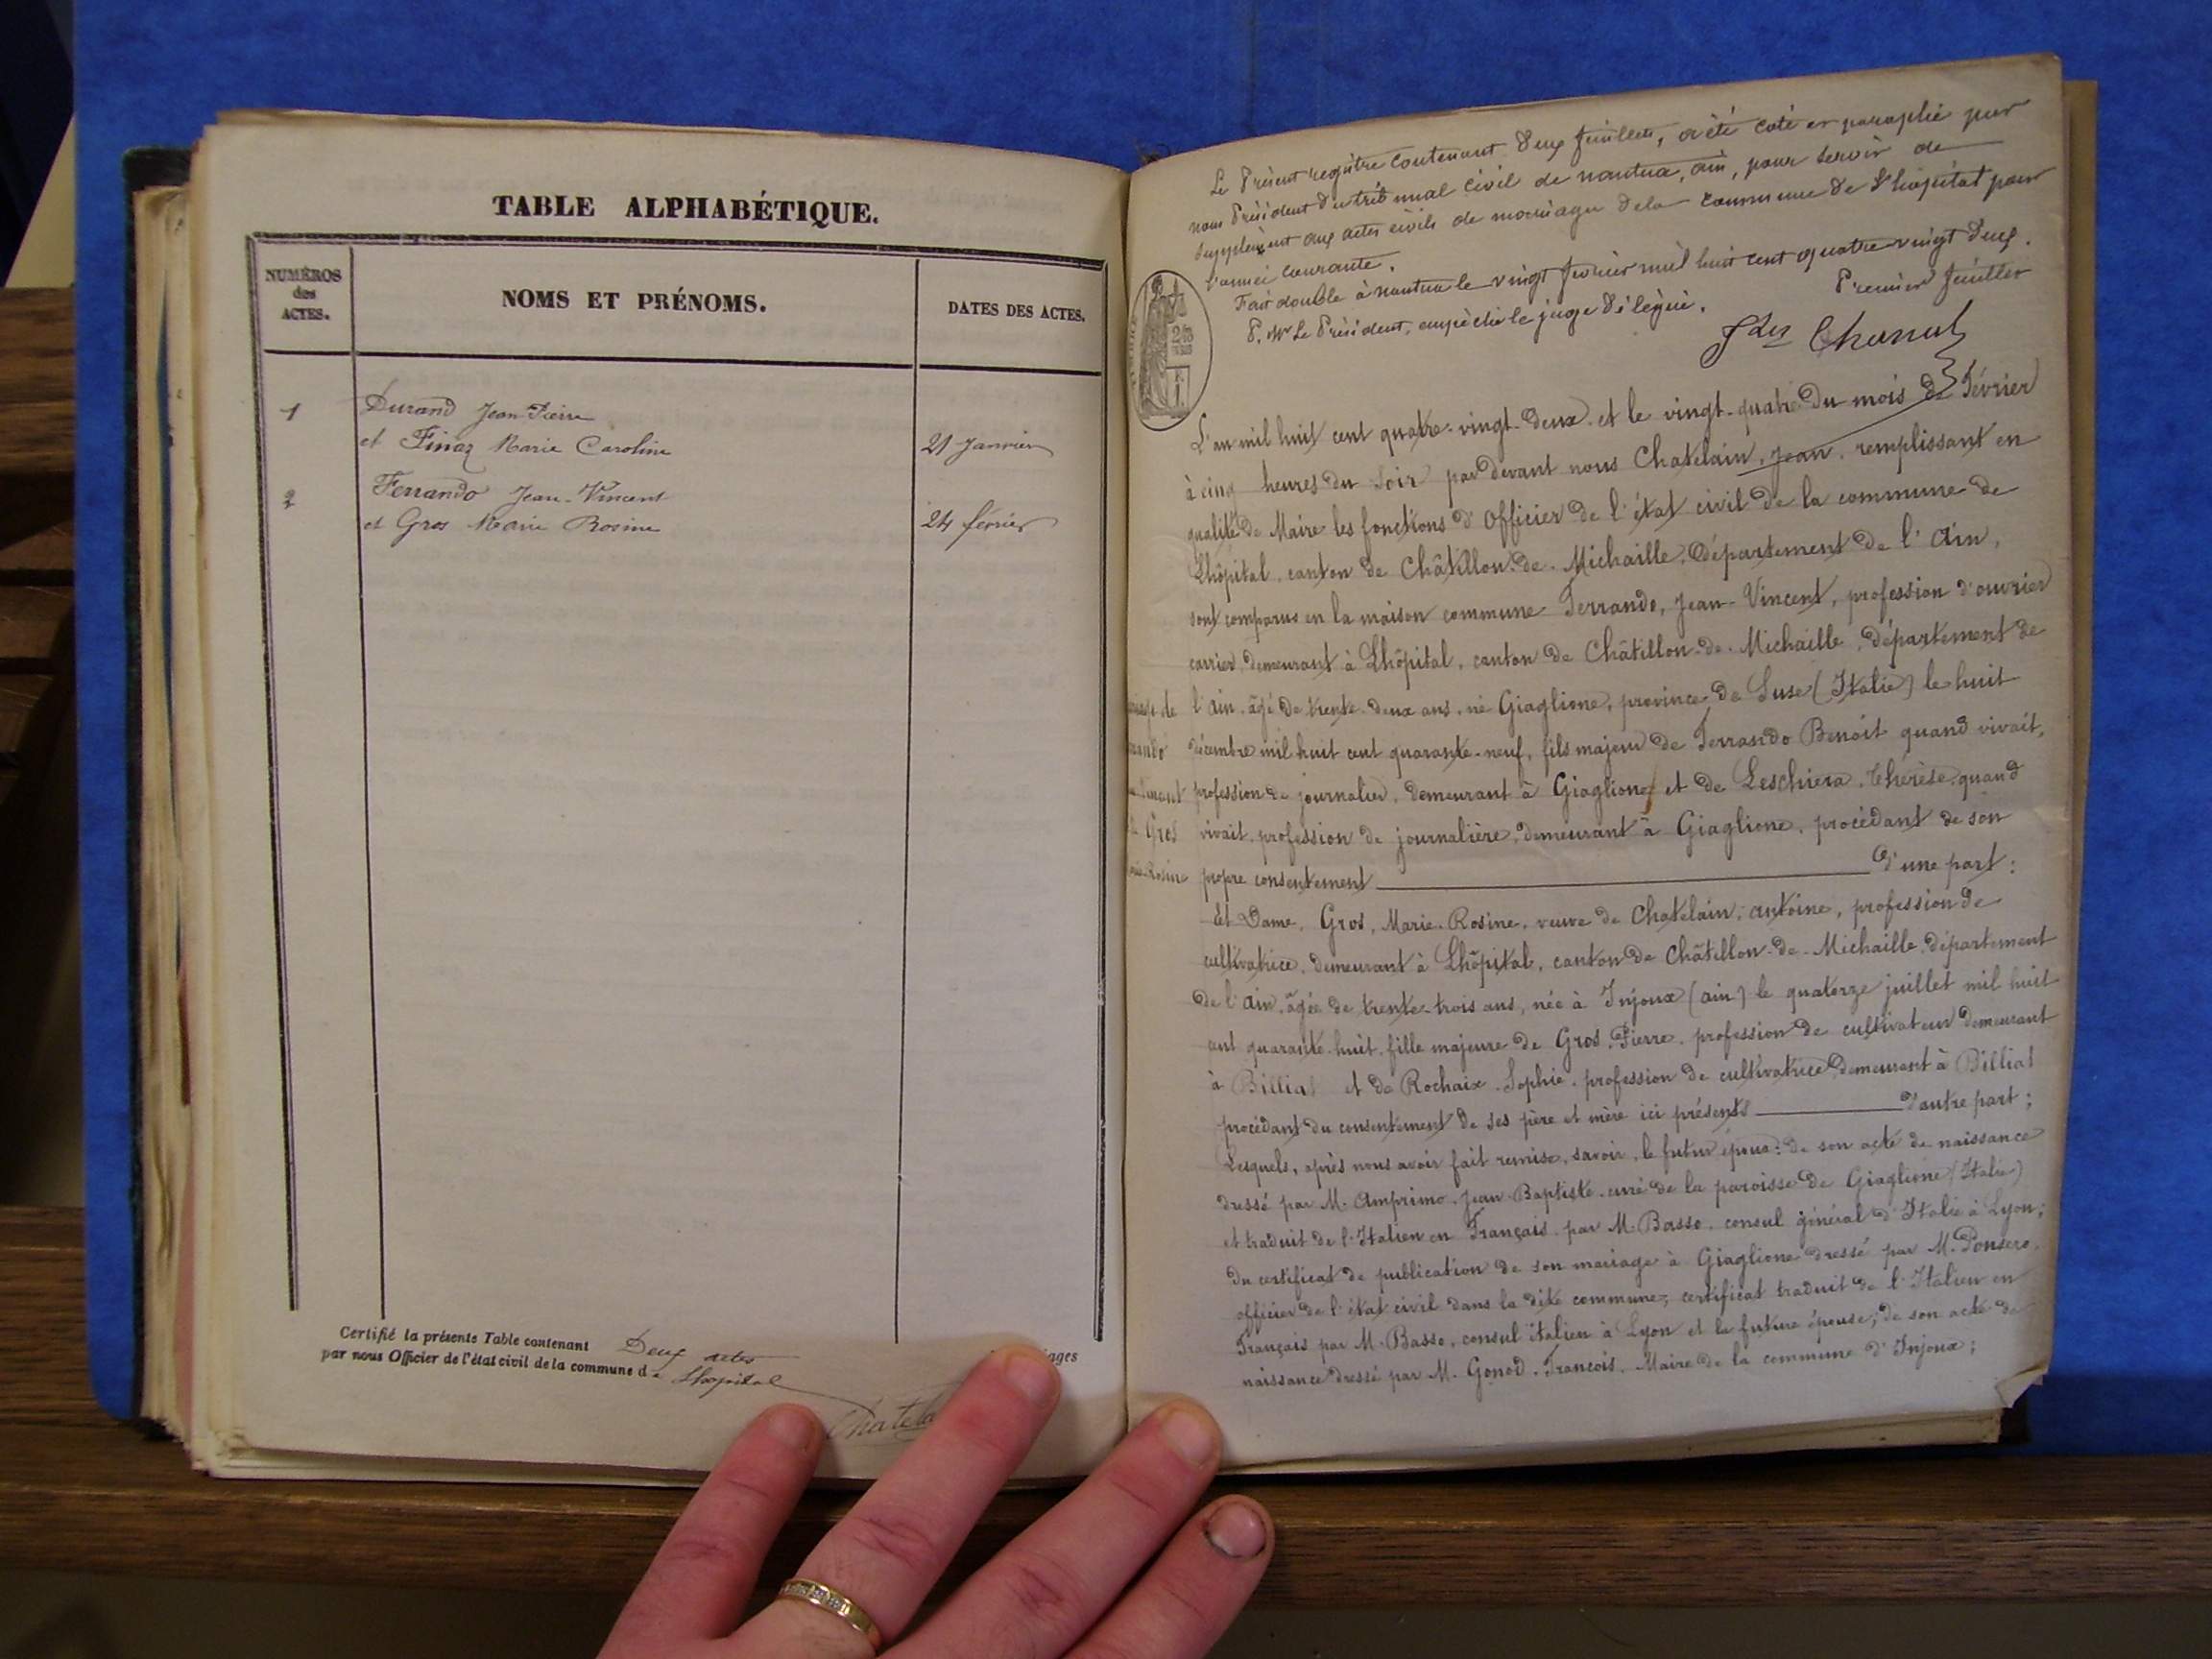 TABLE ALPHABÉTIQUE.
NUMÉROS
des
ACTES.
NOMS ET PRÉNOMS.
DATES DES ACTES.
1
Durand Jean-Pierre
et Finaz Marie Caroline
21 Janvier
2
Ferrando Jean-Vincent
et Gros Marie Rosine
24 février
Certifié la présente Table contenant Deux actes
par nous Officier de l'état civil de la commune de Lhopital
Le Présent registre contenant deux feuillets, a été coté et paraphé par
nous Président du tribunal civil de nantua, ain, pour servir de
supplément aux actes civils de mariages de la commune de L'hôpital pour
l'année courante.
Fait double à nantua le vingt février mil huit cent quatre vingt deux.
P. Mr Le Président, empêché le juge délégué.
Premier feuillet
L'an mil huit cent quatre-vingt-deux et le vingt-quatre du mois de Février
à cinq heures du soir par devant nous Chatelain, Jean, remplissant en
qualité de Maire les fonctions d'officier de l'état civil de la commune de
Lhôpital, canton de Châtillon-de-Michaille, département de l'ain,
sont comparus en la maison commune Ferrando, Jean-Vincent, profession d'ouvrier
carrier demeurant à Lhôpital, canton de Châtillon-de-Michaille, département de
l'ain, âgé de trente-deux ans, né Giaglione, province de Suse (Italie) le huit
décembre mil huit cent quarante-neuf, fils majeur de Ferrando Benoit quand vivait,
profession de journalier, demeurant à Giaglione et de Leschiera, Thérèse quand
vivait, profession de journalière, demeurant à Giaglione, procédant de son
propre consentement d'une part :
Et Dame, Gros, Marie-Rosine, veuve de Chatelain, antoine, profession de
cultivatrice, demeurant à Lhôpital, canton de Châtillon-de-Michaille, département
de l'ain, âgée de trente-trois ans, née à Injoux (ain) le quatorze juillet mil huit
cent quarante-huit, fille majeure de Gros, Pierre, profession de cultivateur demeurant
à Billiat et de Rochaix, Sophie, profession de cultivatrice demeurant à Billiat
procédant du consentement de ses père et mère ici présents d'autre part ;
Lesquels, après nous avoir fait remise, savoir, le futur époux: de son acte de naissance
dressé par M. Amprimo, Jean-Baptiste, curé de la paroisse de Giaglione (Italie)
et traduit de l'Italien en Français par M. Basso, consul général d'Italie à Lyon;
du certificat de publication de son mariage à Giaglione dressé par M. Ponsero,
officier de l'état civil dans la dite commune, certificat traduit de l'Italien en
Français par M. Basso, consul italien à Lyon et la future épouse; de son acte de
naissance dressé par M. Gonod, François, Maire de la commune d'Injoux;